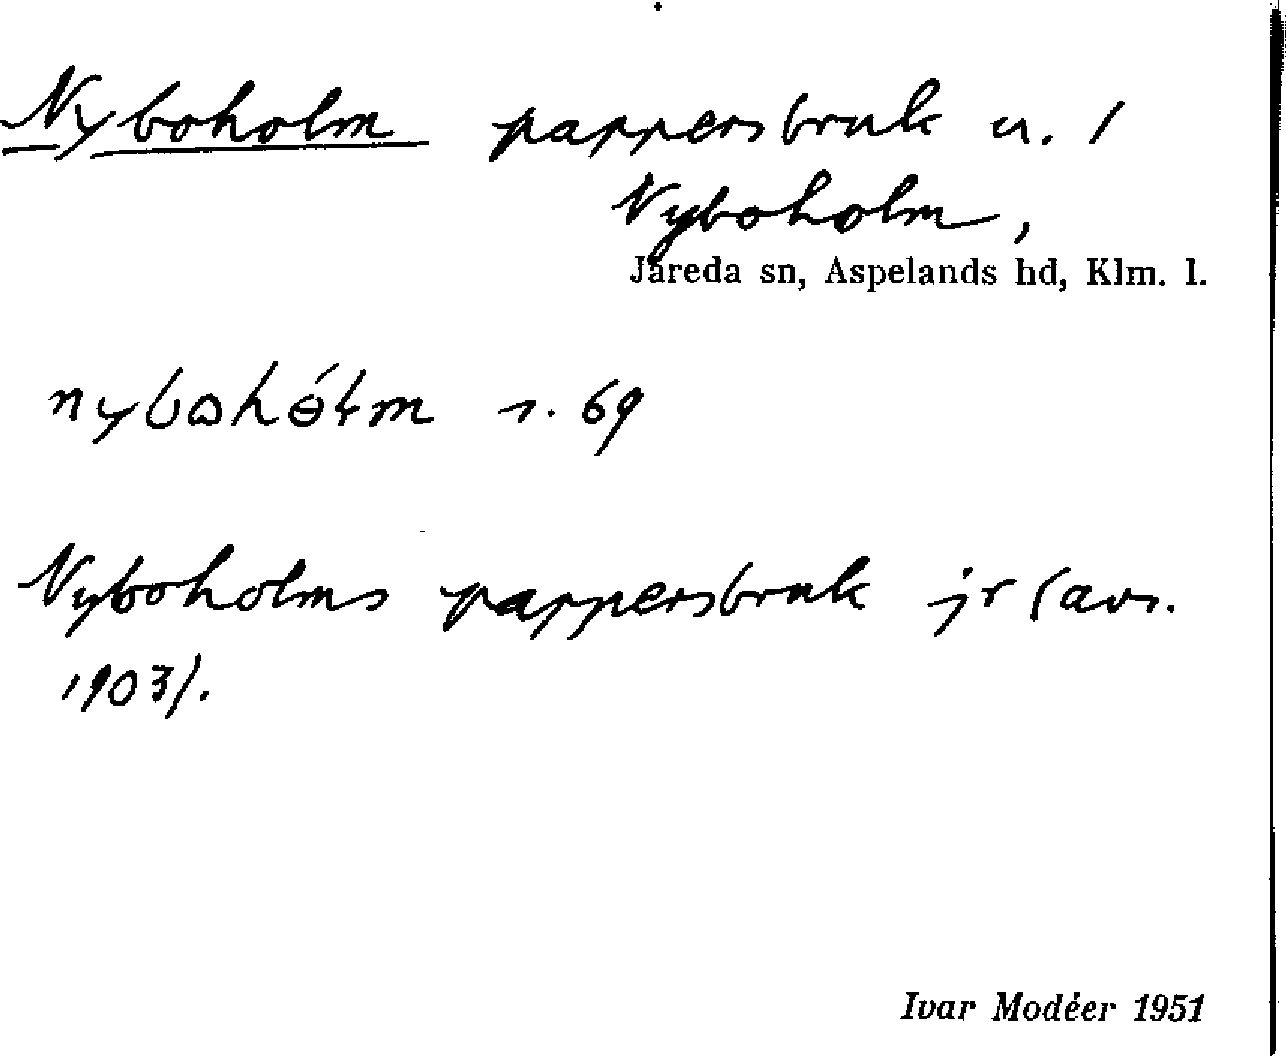 Nyboholm pappersbruk u. 1
Nyboholm,
Järeda sn, Aspelands hd, Klm. l.
nybohólm s. 69
Nyboholms pappersbruk jr (avs.
1903).
Ivar Modéer 1951